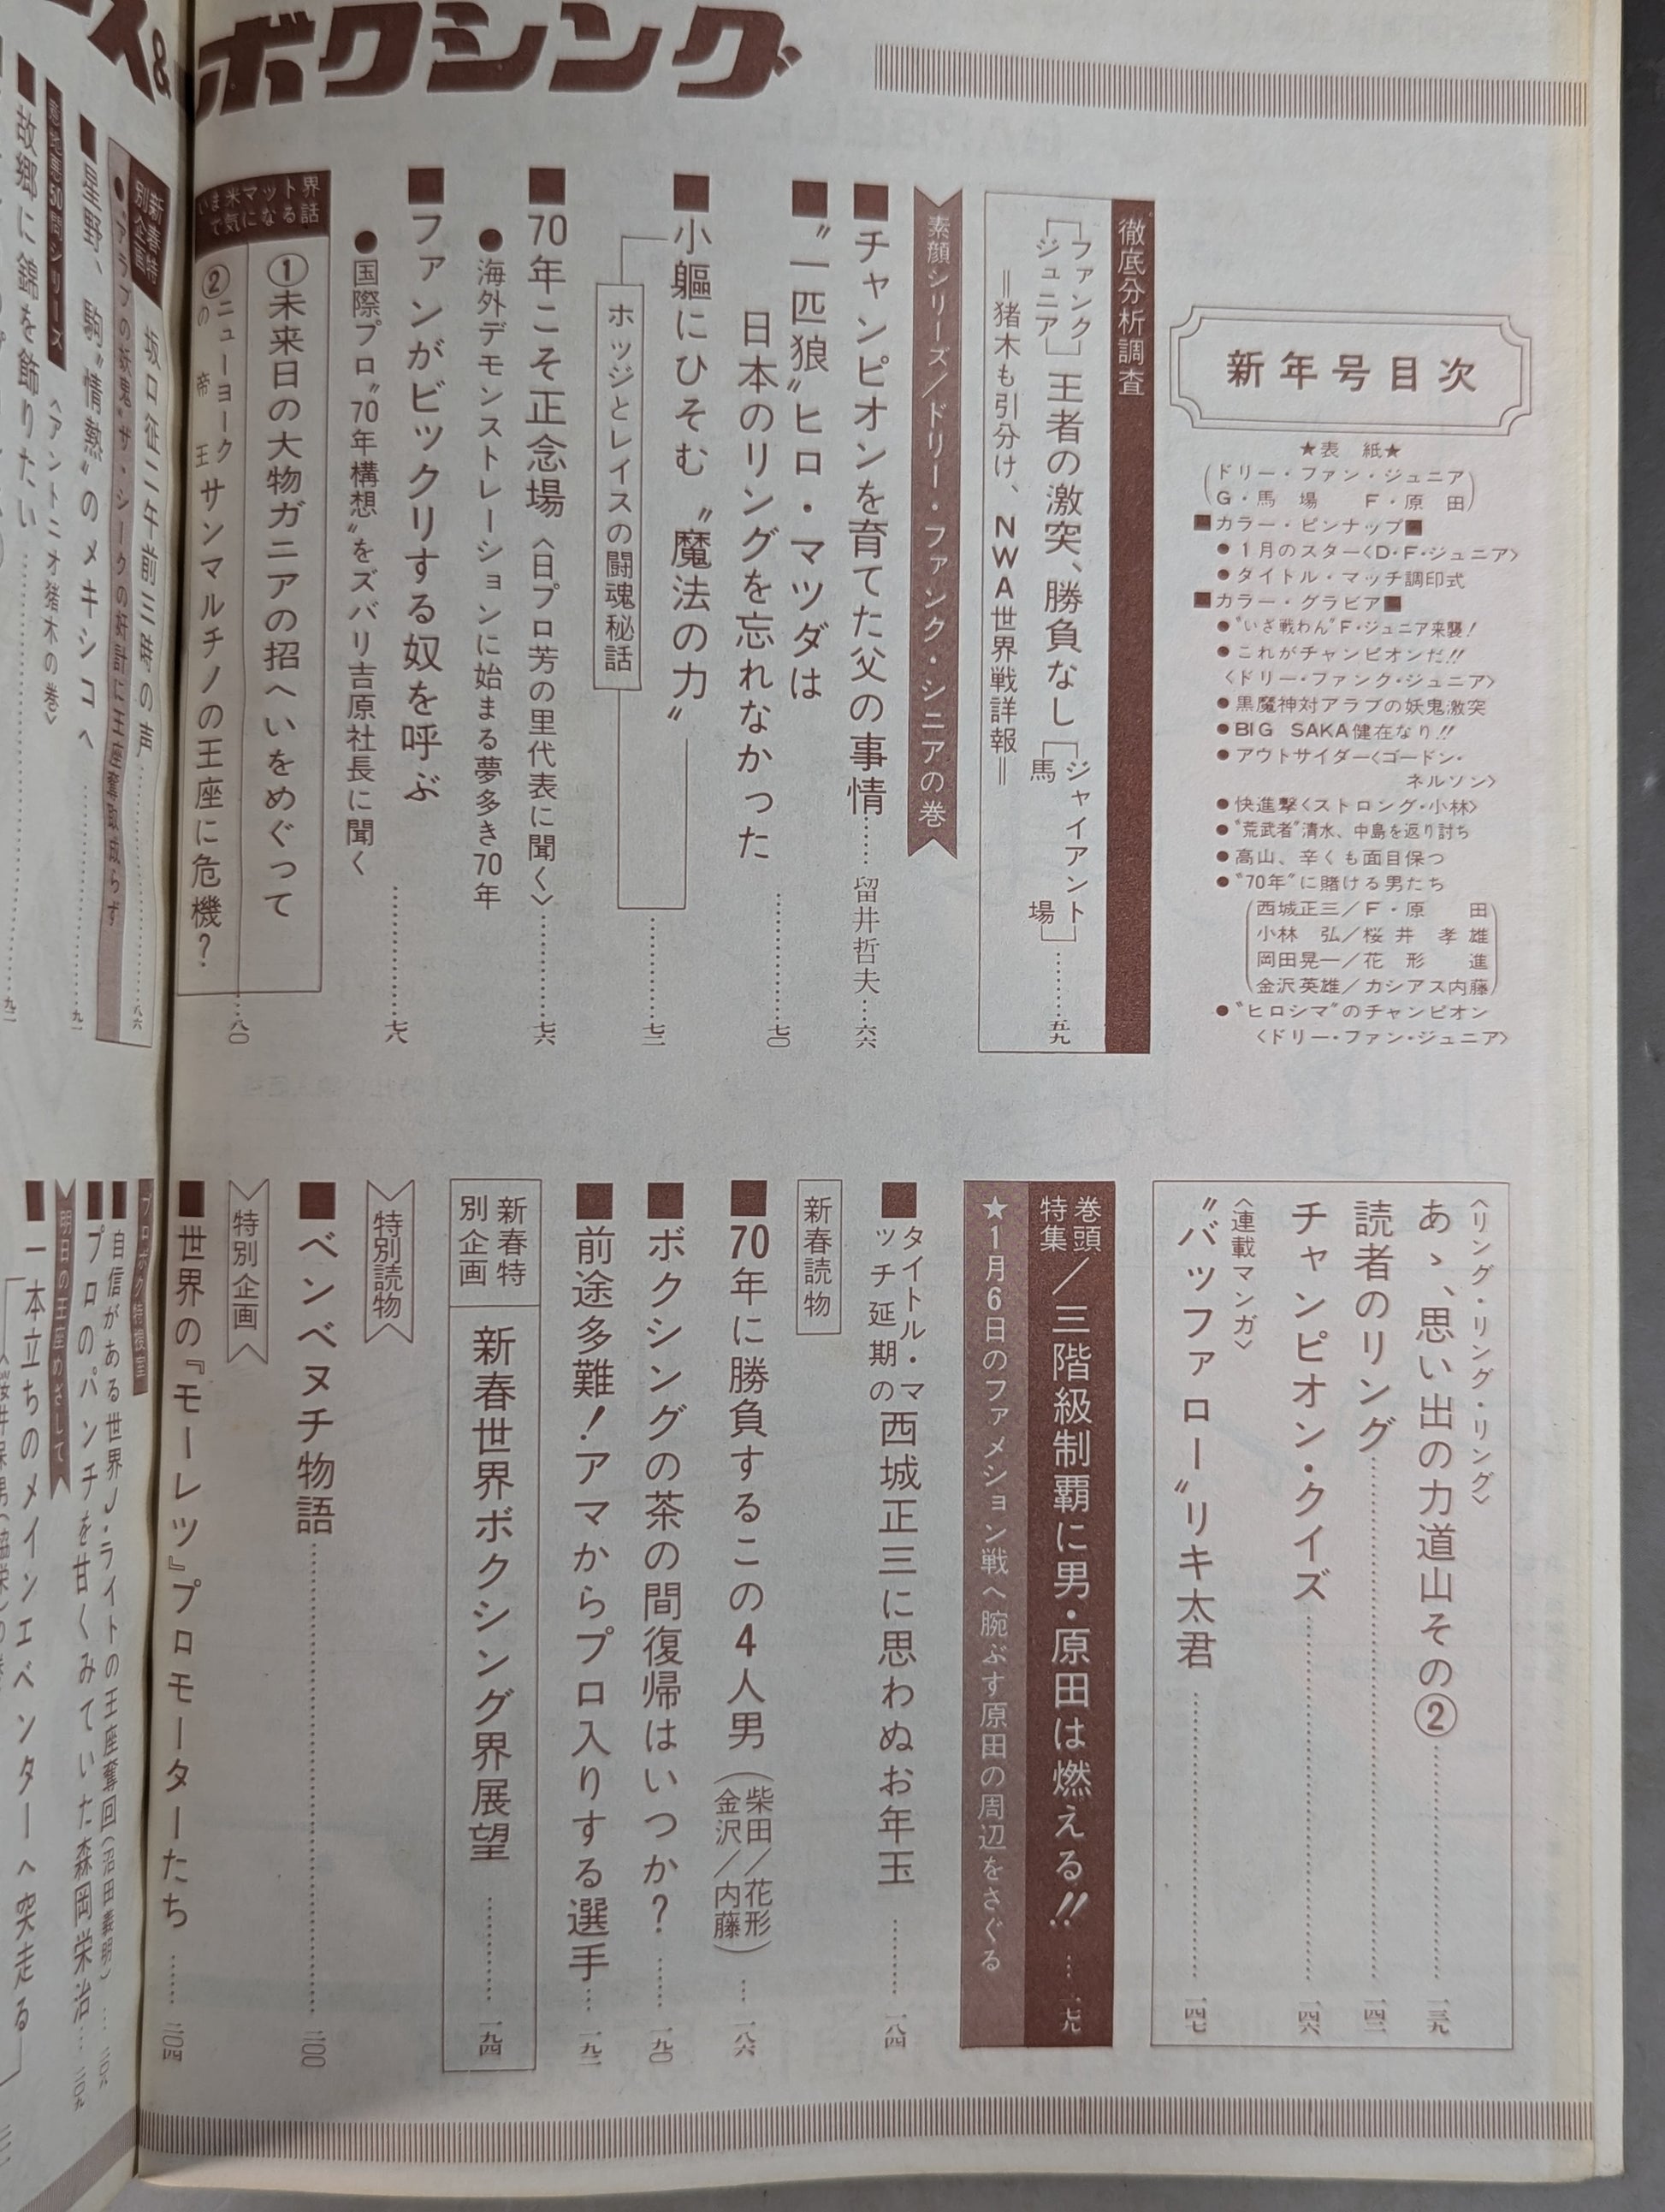 ボクシング
新年号目次
★表　紙★
(ドリー・ファン・ジュニア
G・馬　場　F・原　田)
■カラー・ピンナップ■
●1月のスター〈D・F・ジュニア〉
●タイトル・マッチ調印式
■カラー・グラビア■
●〝いざ戦わん〟F・ジュニア来襲!
●これがチャンピオンだ!!
〈ドリー・ファンク・ジュニア〉
●黒魔神対アラブの妖鬼激突
●BIG SAKA健在なり!!
●アウトサイダー〈ゴードン・
ネルソン〉
●快進撃〈ストロング・小林〉
●〝荒武者〟清水、中島を返り討ち
●高山、辛くも面目保つ
●〝70年〟に賭ける男たち
(西城正三／F・原　田
小林　弘／桜井　孝雄
岡田晃一／花　形　進
金沢英雄／カシアス内藤)
●〝ヒロシマ〟のチャンピオン
〈ドリー・ファン・ジュニア〉
徹底分析調査
「ファンク
ジュニア」王者の激突、勝負なし「ジャイアント
馬　場」……五九
＝猪木も引分け、NWA世界戦詳報＝
素顔シリーズ／ドリー・ファンク・シニアの巻
■チャンピオンを育てた父の事情……留井哲夫…六六
■〝一匹狼〟ヒロ・マツダは
日本のリングを忘れなかった……七〇
■小軀にひそむ〝魔法の力〟……七二
ホッジとレイスの闘魂秘話
■70年こそ正念場〈日プロ芳の里代表に聞く〉……七六
●海外デモンストレーションに始まる夢多き70年
■ファンがビックリする奴を呼ぶ……七八
●国際プロ〝70年構想〟をズバリ吉原社長に聞く
いま米マット界
で気になる話
①未来日の大物ガニアの招へいをめぐって
②ニューヨーク
の帝王サンマルチノの王座に危機?…八〇
新春特
別企画
坂口征二午前三時の声……八六
●〝アラブの妖鬼〟ザ・シークの奸計に王座奪取成らず
■星野、駒〝情熱〟のメキシコへ
〈アントニオ猪木の巻〉
■故郷に錦を飾りたい
〈リング・リング・リング〉
あゝ、思い出の力道山その②……一三九
読者のリング……一四二
チャンピオン・クイズ……一四六
〈連載マンガ〉
〝バッファロー〟リキ太君……一四七
巻頭
特集／三階級制覇に男・原田は燃える!!…一七九
★1月6日のファメション戦へ腕ぶす原田の周辺をさぐる
■タイトル・マ
ッチ延期の西城正三に思わぬお年玉……一八四
新春読物
■70年に勝負するこの4人男(柴田／花形
金沢／内藤)…一八六
■ボクシングの茶の間復帰はいつか?……一九〇
■前途多難!アマからプロ入りする選手…一九二
新春特
別企画
新春世界ボクシング界展望……一九四
特別読物
■ベンベヌチ物語……二〇〇
特別企画
■世界の『モーレツ』プロモーターたち……二〇四
プロボク特捜室
■自信がある世界J・ライトの王座奪回(沼田義明)…二〇六
■プロのパンチを甘くみていた森岡栄治…二〇九
明日の王座めざして
■一本立ちのメインエベンターへ突走る